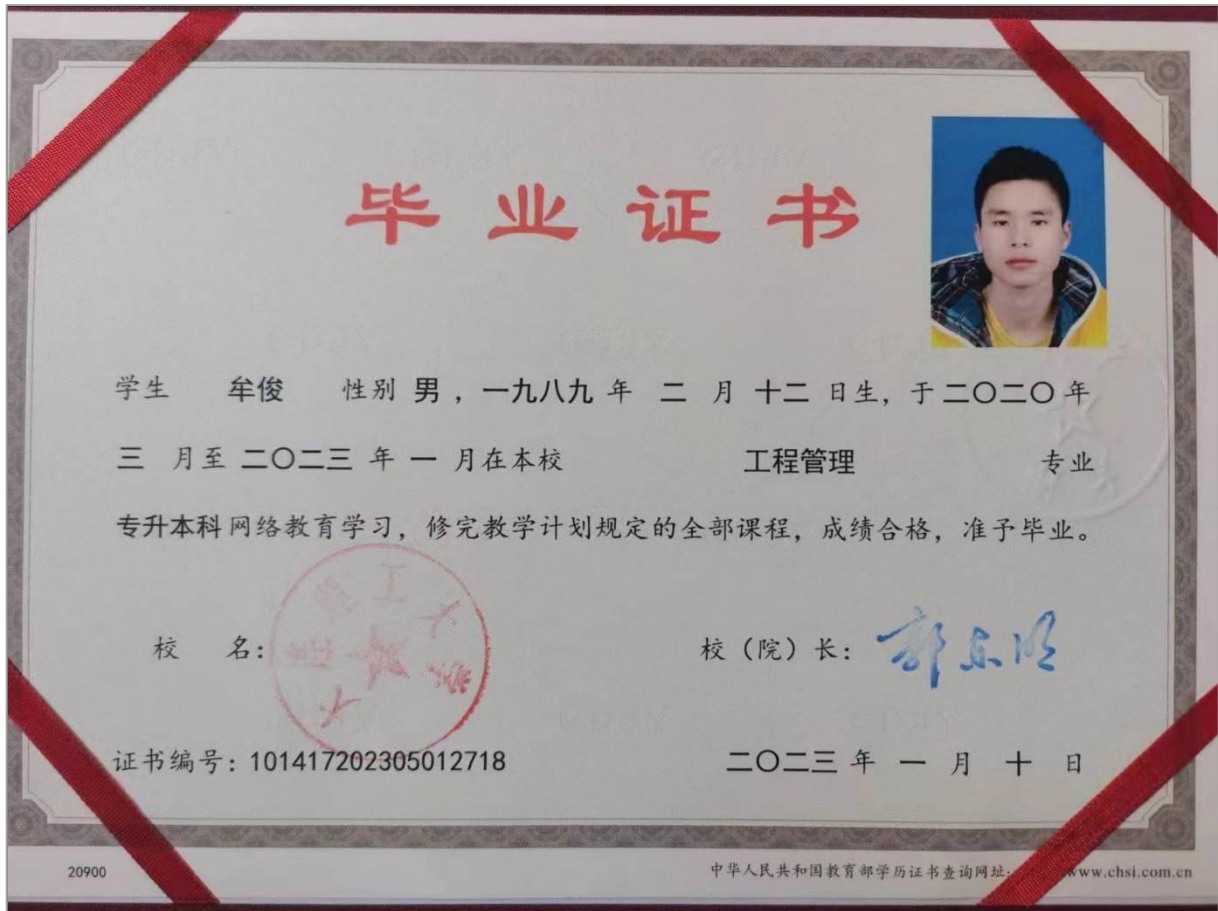 毕业证书
学生 牟俊 性别 男，一九八九年 二 月 十二 日生，于二〇二〇年
三 月至 二〇二三 年 一 月在本校 工程管理 专业
专升本科网络教育学习，修完教学计划规定的全部课程，成绩合格，准予毕业。
校 名：
大连理工大学
校（院）长：郭东明
证书编号：101417202305012718
二〇二三 年 一 月 十 日
20900
中华人民共和国教育部学历证书查询网址：www.chsi.com.cn